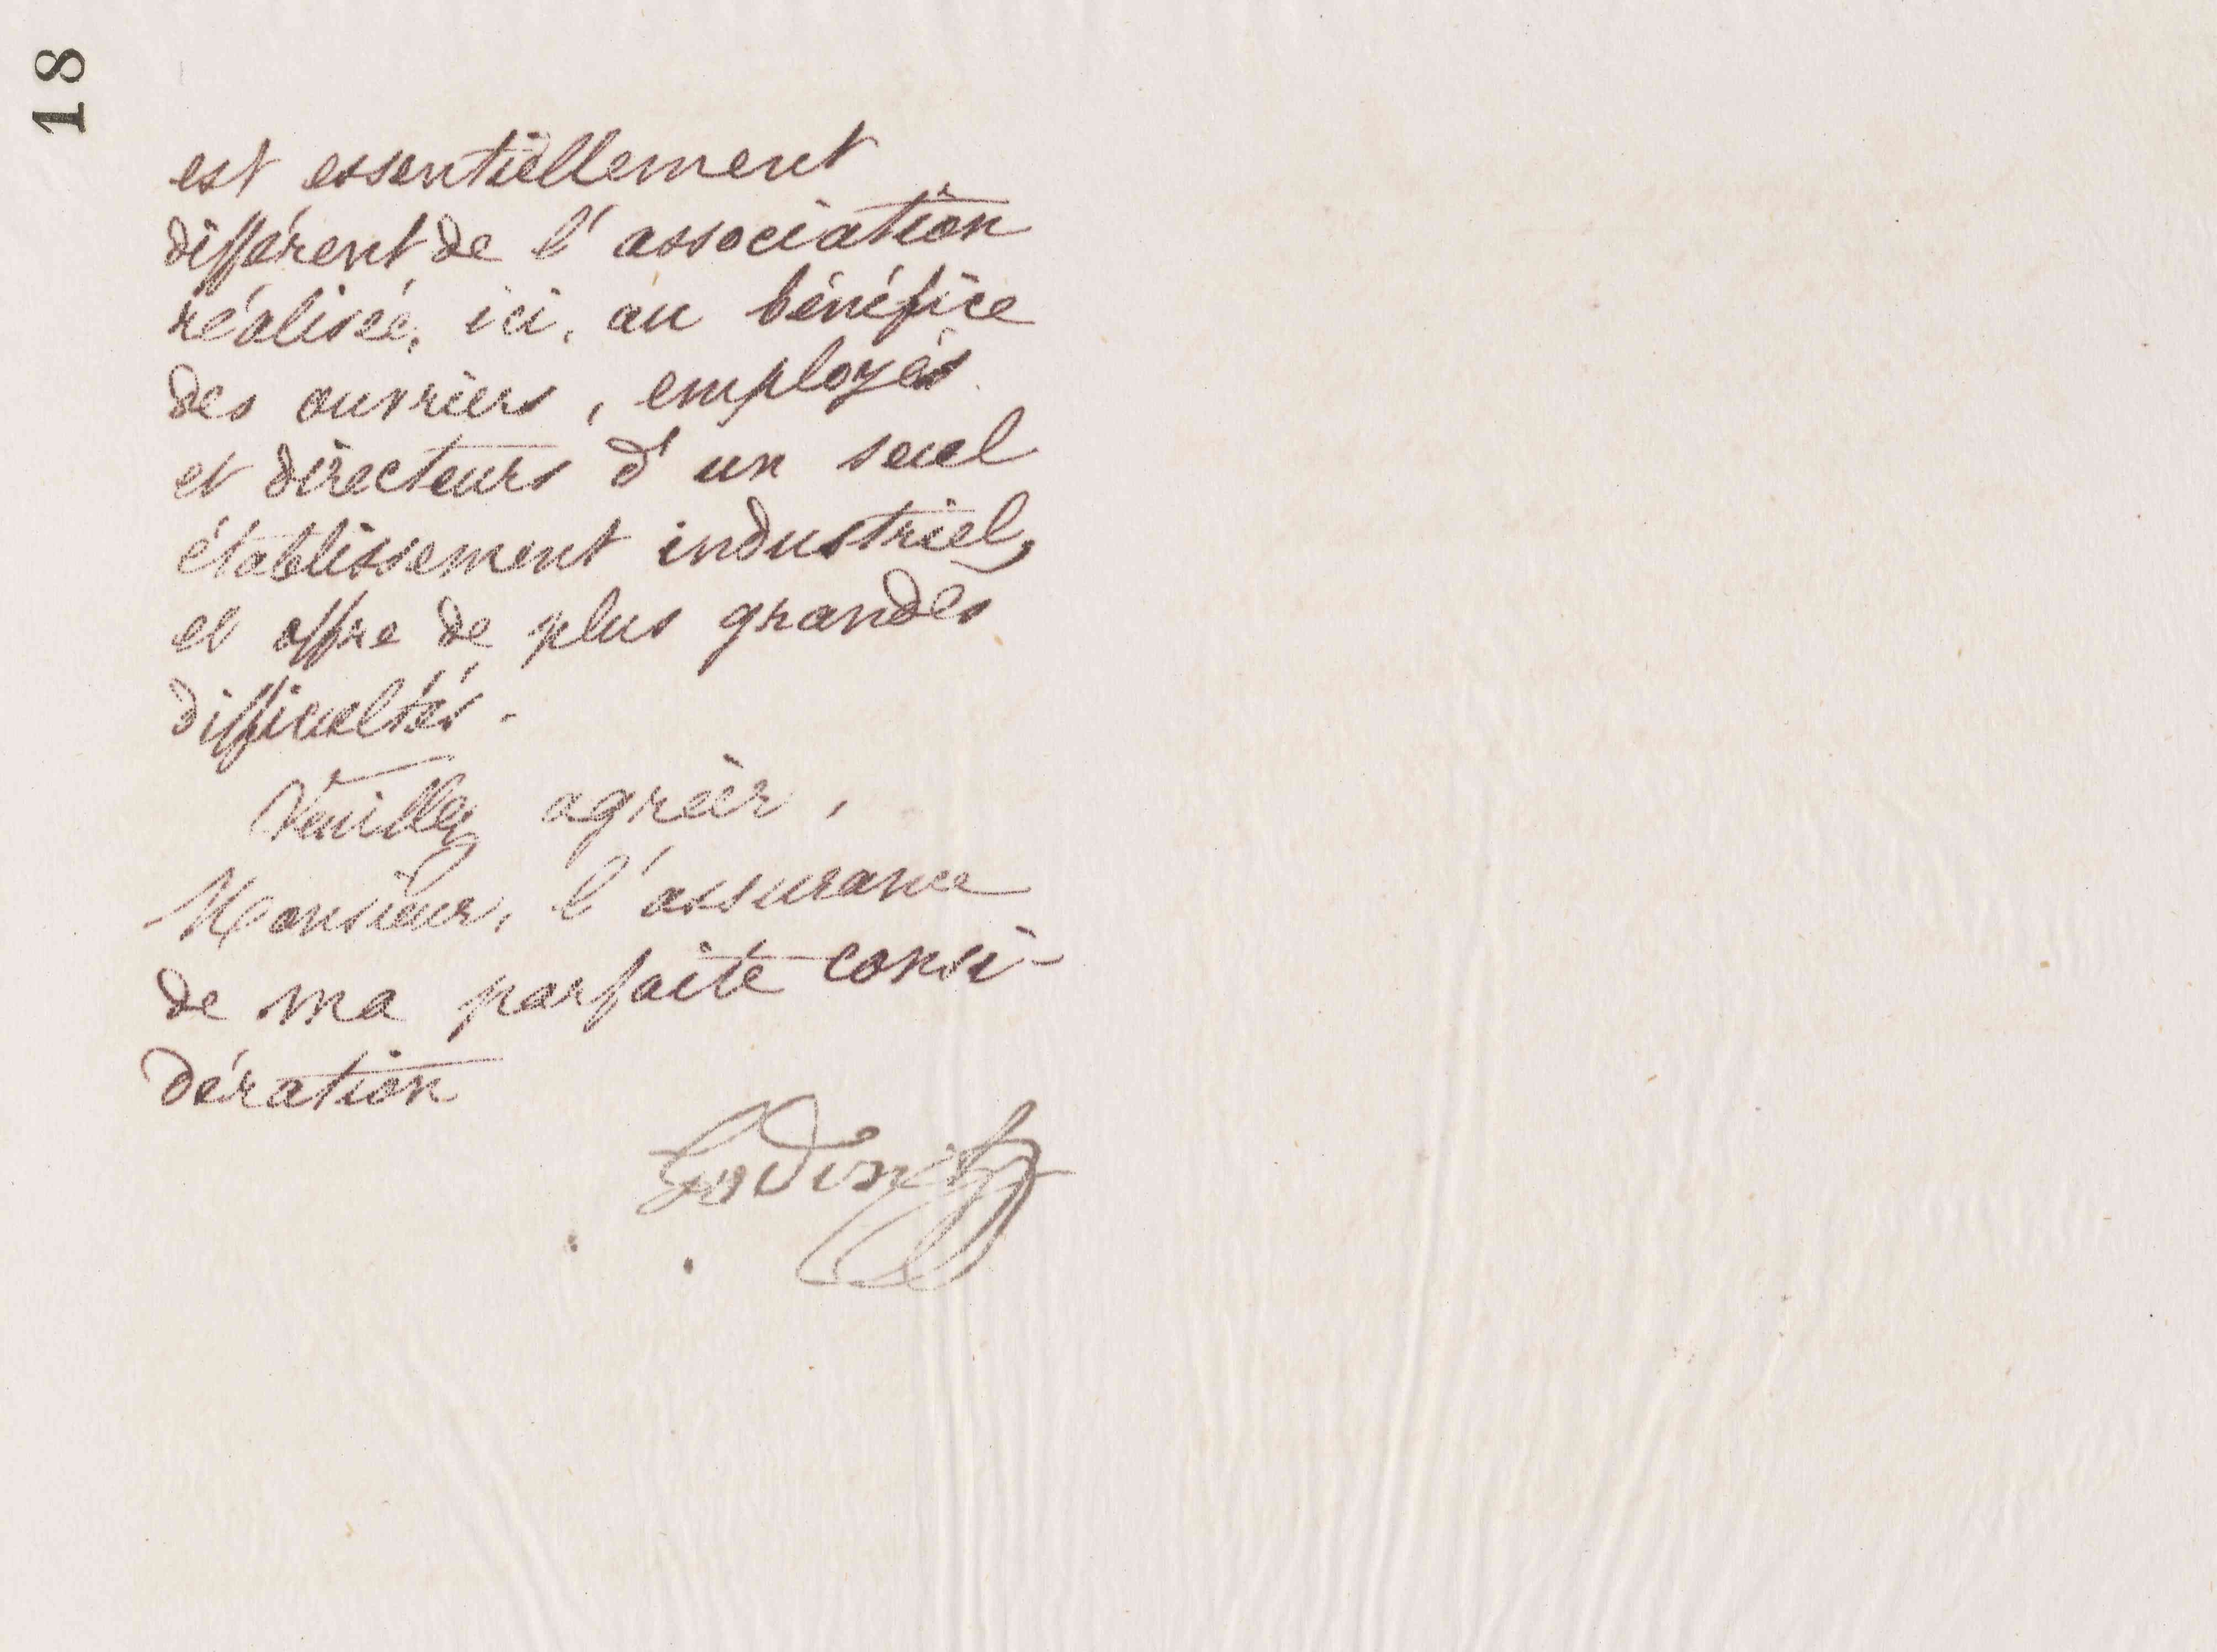 18
est essentiellement
différent de l'association
réalisée, ici, au bénéfice
des ouvriers, employés
et directeurs d'un seul
établissement industriel,
et offre de plus grandes
difficultés.
Veuillez agréer,
Monsieur, l'assurance
de ma parfaite consi-
dération
Godin